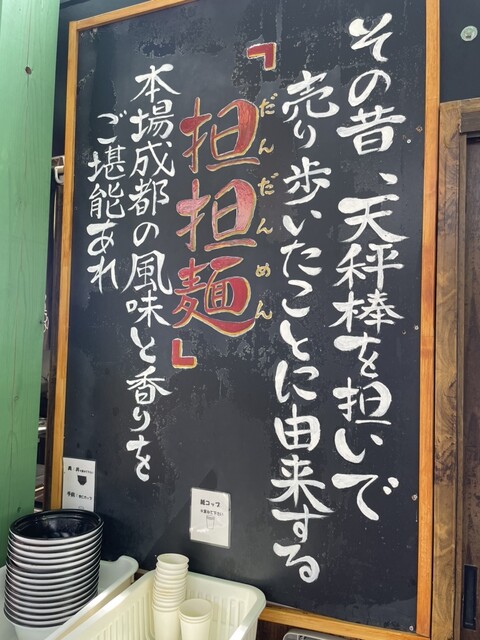 その昔、天秤棒を担いで
売り歩いたことに由来する
『担担麺』
だんだんめん
本場成都の風味と香りを
ご堪能あれ
紙コップ